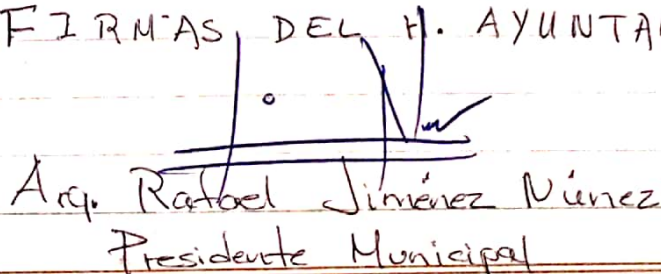 FIRMAS DEL H. AYUNTA
Arq. Rafael Jiménez Núñez
Presidente Municipal